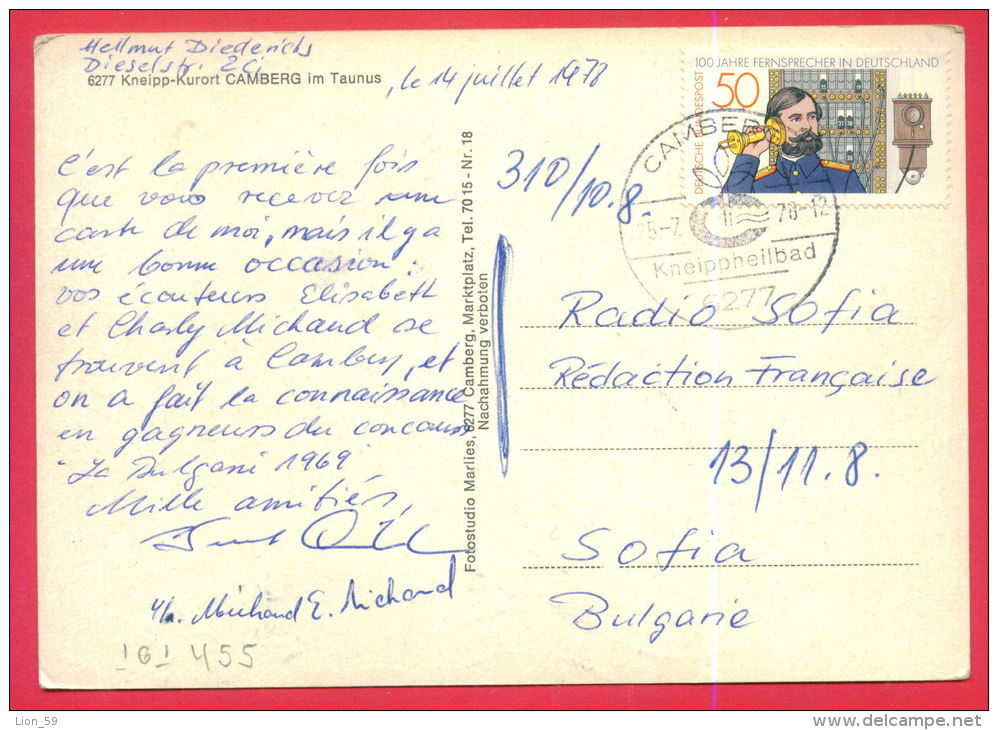 Hellmut Diederichs
Dieselstr. 2c,
6277 Kneipp-Kurort CAMBERG im Taunus
, le 14 juillet 1978
C'est la première fois
que vous recevez une
carte de moi, mais il y a
une bonne occasion:
vos écouteurs Elisabeth
et Charly Michaud se
trouvent à Camberg, et
on a fait la connaissance
en gagneurs du concours
"La Bulgarie 1969"
Mille amitiés,
Michaud E. Michaud
455
Fotostudio Marlies, 6277 Camberg, Marktplatz, Tel. 7015 - Nr. 18
Nachahmung verboten
100 JAHRE FERNSPRECHER IN DEUTSCHLAND
DEUTSCHE BUNDESPOST
50
CAMBERG
78-12
Kneippheilbad
6277
310/10.8.
Radio Sofia
Rédaction Française
13/11.8.
Sofia
Bulgarie
Lion_59
delcampe.net